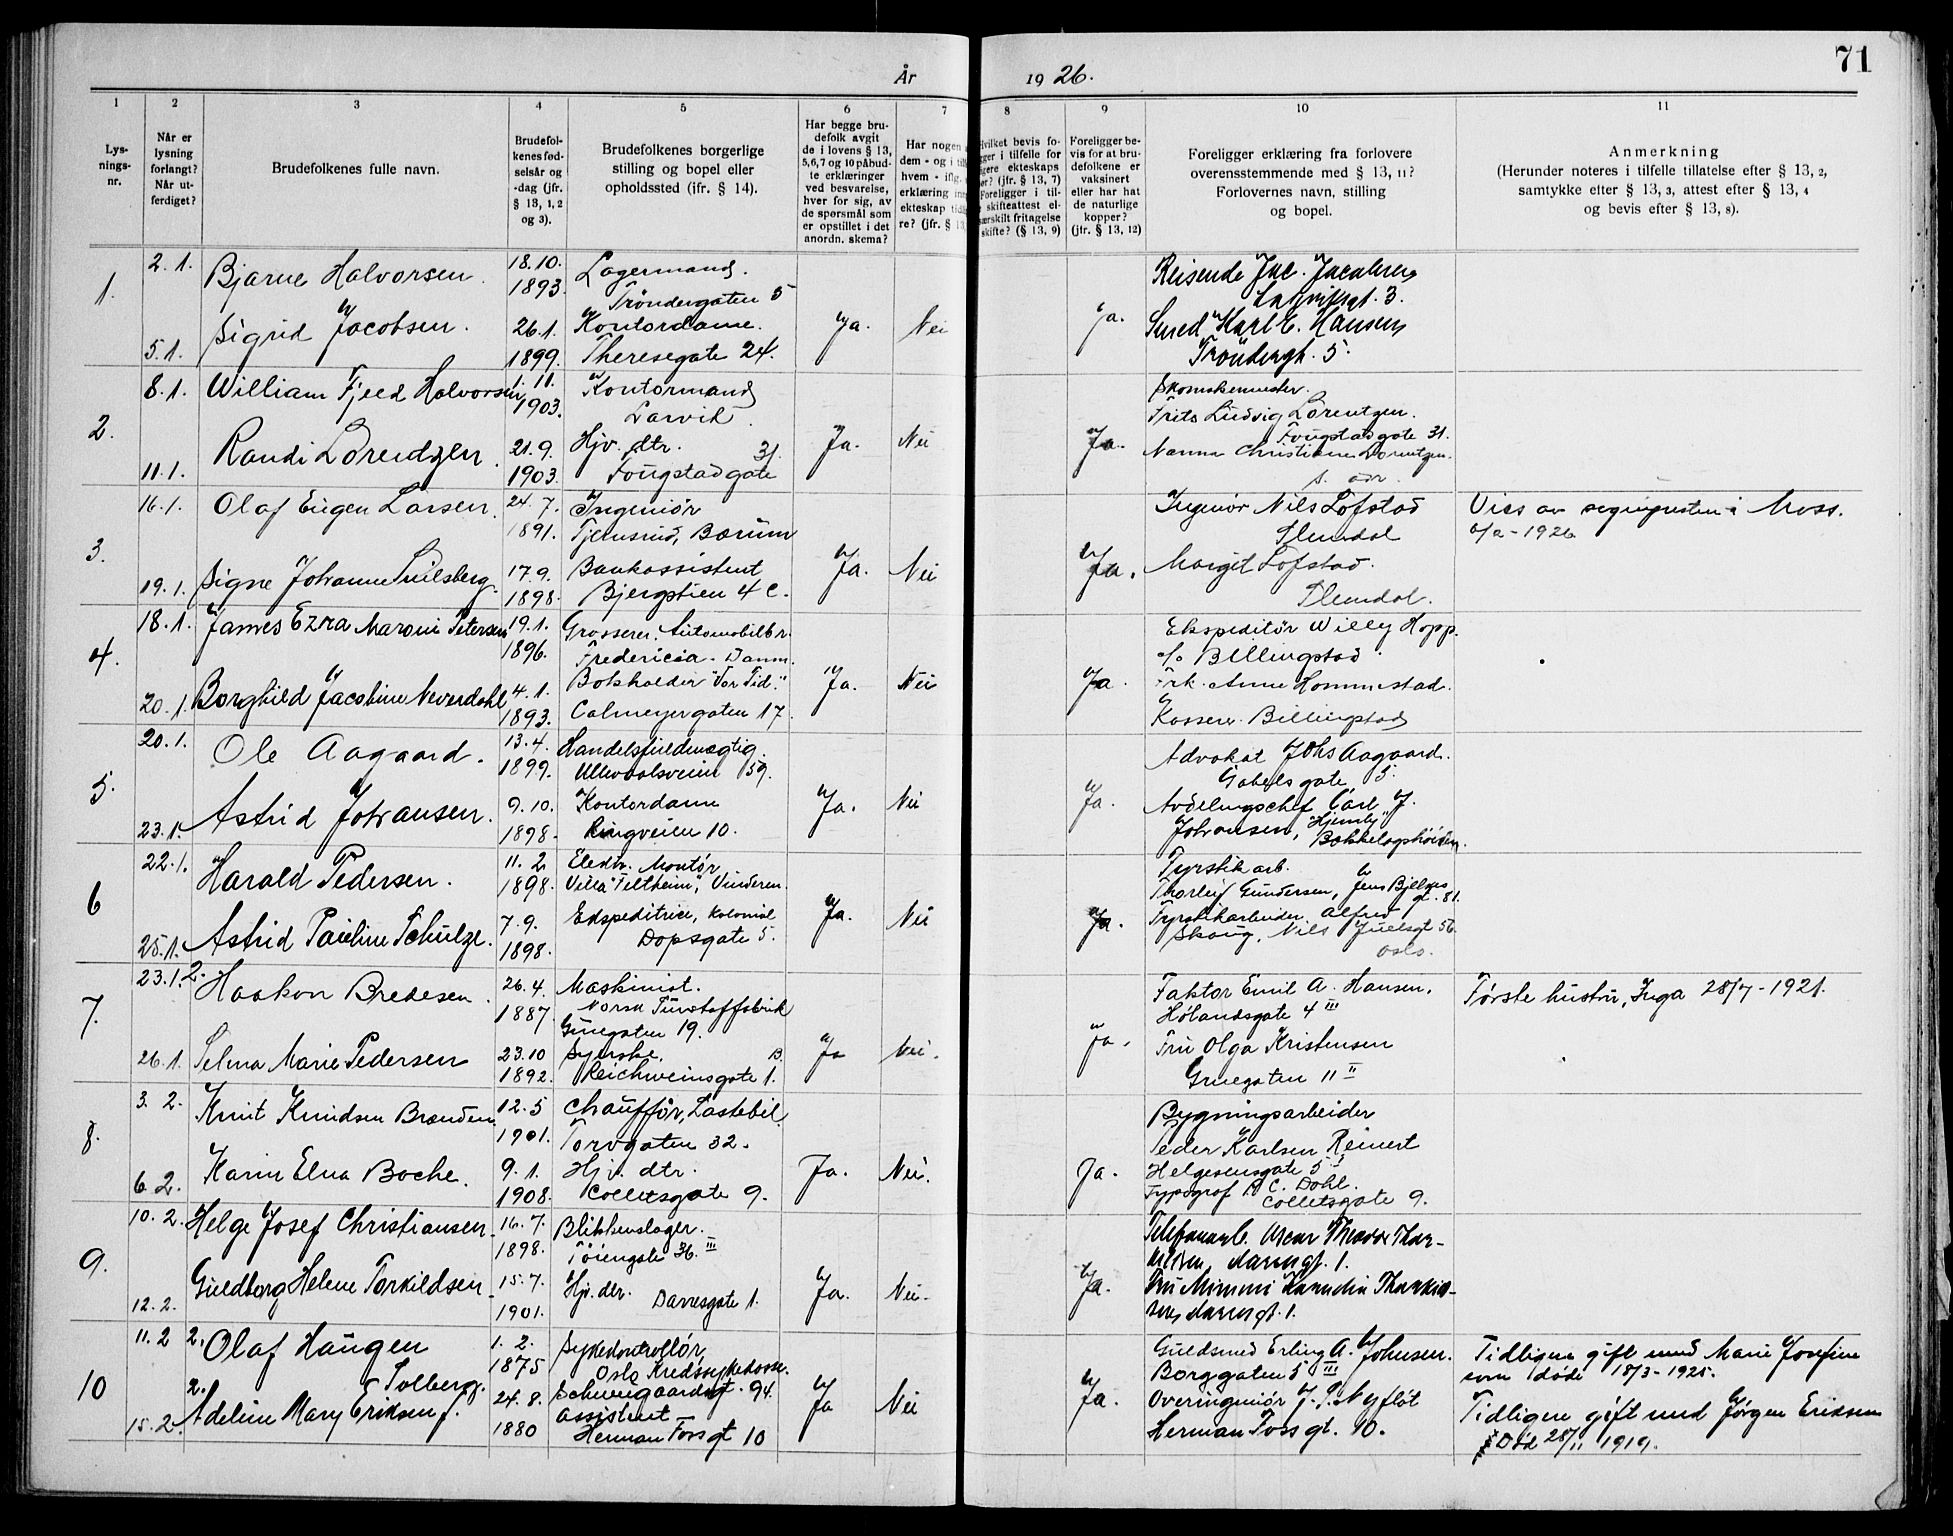 År 1926.
71
1
2
3
4
5
6
7
8
9
10
11
Lys-
nings-
nr.
Når er
lysning
forlangt?
Når ut-
ferdiget?
Brudefolkenes fulle navn.
Brudefol-
kenes fød-
selsår og
-dag (jfr.
§ 13, 1, 2
og 3).
Brudefolkenes borgerlige
stilling og bopel eller
opholdssted (ifr. § 14).
Har begge bru-
defolk avgit
de i lovens § 13,
5,6,7 og 10 påbud-
te erklæringer
ved besvarelse,
hver for sig, av
de spørsmål som
er opstillet i det
anordn. skema?
Har nogen
dem - og i
hvem - iflg.
erklæring
ekteskap
re? (jfr. § 13,
Hvilket bevis fo-
i tilfelle for
ekteskaps
(jfr. § 13, 7)
Foreligger i til-
skifteattest el-
særskilt fritagelse
skifte? (§ 13, 9)
Foreligger be-
vis for at bru-
defolkene er
vaksinert
eller har hat
de naturlige
kopper?
(jfr. § 13, 12)
Foreligger erklæring fra forlovere
overensstemmende med § 13, 11?
Forlovernes navn, stilling
og bopel.
Anmerkning
(Herunder noteres i tilfelle tillatelse efter § 13, 2,
samtykke efter § 13, 3, attest efter § 13, 4
og bevis efter § 13, 8).
1.
2.1. Bjarne Halvorsen. 18.10. 1893. Lagermand.
Tröndergaten 5
5.1. Sigrid Jacobsen. 26.1. 1899. Kontordame.
Theresegate 24.
Ja. Nei Ja.
Reisende Jac. Jacobsen
3.
Smed Karl E. Hansen
Tröndergt. 5.
2.
8.1. William Fjeld Halvorsen 1.11. 1903. Kontormand
Larvik
11.1. Randi Lorentzen. 21.9. 1903. Hjv. dtr.
Fougstadgate 31
Ja. Nei Ja.
Skomakermester.
Frits Ludvig Lorentzen.
Fougstadgate 31.
Nanna Christiane Lorentzen.
s. adr.
3.
16.1. Olaf Eugen Larsen. 24.7. 1891. Ingeniør
Tjernsrud, Bærum
19.1. Signe Johanne 17.9. 1898. Bankassistent
Bjergstien 4 c.
Ja. Nei Ja.
Ingeniør Nils Löfstad
Slemdal
Margit Löfstad.
Slemdal.
Vies av sognepresten i Moss.
6/2 - 1926
4.
18.1. James Ezra Maroni Petersen 19.1. 1896. Grosserer. Automobilbr.
Fredericia. Danm.
20.1. Borghild Jacobine Neverdahl 4.1. 1893. Bokholder "Vor Tid."
Calmeyergaten 17.
Ja. Nei Ja.
Ekspeditör Willy Hopp.
c/o Billingstad.
Frk. Anne Hommestad.
Kasserer Billingstad
5.
20.1. Ole Aagaard. 13.4. 1899. Handelsfuldmægtig.
Ullevaalsveien 59.
23.1. Astrid Johansen. 9.10. 1898. Kontordame
Ringveien 10.
Ja. Nei Ja.
Advokat Johs Aagaard.
Gabels gate 5.
Avdelingschef Carl J.
Johansen, "Hjemly"
Bækkelagshöiden.
6
22.1. Harald Pedersen. 11.2 1898. Elektr. Montør
Villa "Feltheim", Vinderen.
25.1. Astrid Pauline Schulze. 7.9. 1898. Ekspeditrice, kolonial
Dopsgate 5.
Ja. Nei Ja.
Fyrstik arb.
Thorleif Gundersen, Jens Bjelkes
gt. 81.
Fyrstikarbeider Alfred
Skaug, Nils Juelsgt 56.
Oslo.
7.
23.1. 2. Haakon Bredesen. 26.4. 1887. Maskinist.
Norsk Tunstoffabrik
Gruegaten 19.
26.1. Selma Marie Pedersen 23.10 1892. Syerske.
Reichweinsgate 1. B.
Ja Nei. Ja.
Faktor Emil A. Hansen.
Hölandsgate 4 III
Fru Olga Kristensen
Gruegaten 11 II
Første hustru, Inga 28/7 - 1921.
8.
3.2. Knut Knudsen Brænden. 12.5 1901. Chauffför, Lastebil
Torvgaten 32.
6.2. Karin Elna Boche. 9.1. 1908. Hjv. dtr.
Colletsgate 9.
Ja. Nei. Ja.
Bygningsarbeider
Peder Karlsen Reinert
Helgesensgate 5
Typograf C. Dahl.
Colletsgate 9.
9.
10.2. Helge Josef Christiansen. 16.7. 1898. Blikkenslager.
Töiengate 36. III
12.2. Guldborg Helene Torkildsen. 15.7. 1901. Hjv. dtr.
Darresgate 1.
Ja. Nei. Ja.
Telefonarb. Oscar Theodor Thor-
kildsen, Darresgt. 1.
Fru Mimmi Thorkild-
sen, Darresgt. 1.
10
11.2 2. Olaf Haugen 1.2. 1875 Sykekontrollør,
Oslo Kredssykekasse.
Schweigaardsgt. 94.
15.2. 2. Adeline Mary Eriksen f. Solberg. 24.8. 1880 Assistent
Herman Foss gt 10
Ja Nei Ja.
Guldsmed Erling A. Johnsen.
Borggaten 5 III
Overingeniør J. S. Nyfløt
Herman Foss gt. 10.
Tidligere gift med Marie Josefine
som døde 18/3 - 1925.
Tidligere gift med Jørgen Eriksen
Død 28/11 1919.